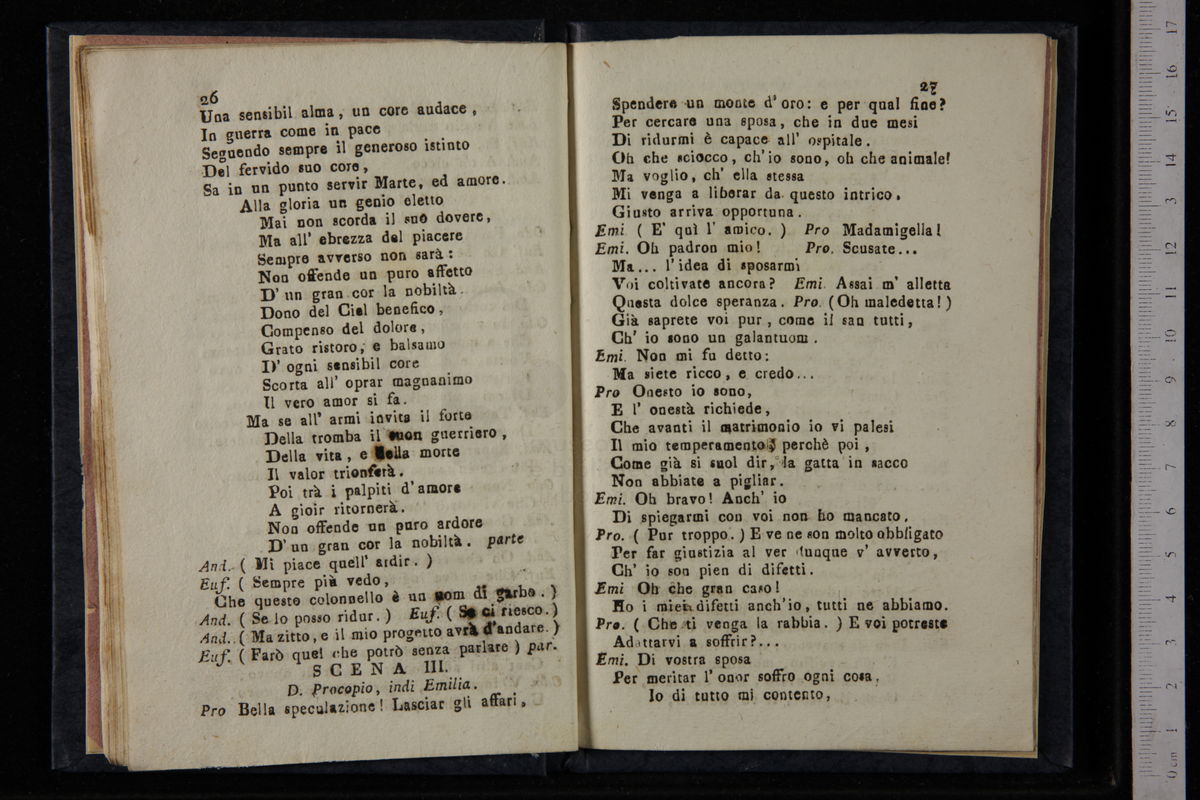 26
Una sensibil alma, un core audace,
In guerra come in pace
Seguendo sempre il generoso istinto
Del fervido suo core,
Sa in un punto servir Marte, ed amore.
Alla gloria un genio eletto
Mai non scorda il suo dovere,
Ma all' ebrezza del piacere
Sempre avverso non sarà:
Non offende un puro affetto
D' un gran cor la nobiltà.
Dono del Ciel benefico,
Compenso del dolore,
Grato ristoro, e balsamo
D' ogni sensibil core
Scorta all' oprar magnanimo
Il vero amor si fa.
Ma se all' armi invita il forte
Della tromba il suon guerriero,
Della vita, e della morte
Il valor trionferà.
Poi trà i palpiti d'amore
A gioir ritornerà.
Non offende un puro ardore
D' un gran cor la nobiltà. parte
And. ( Mi piace quell' ardir. )
Euf. ( Sempre più vedo,
Che questo colonnello è un uom di garbo. )
And. ( Se lo posso ridur. ) Euf. ( Se ci riesco. )
And. ( Ma zitto, e il mio progetto avrà d'andare. )
Euf. ( Farò quel che potrò senza parlare ) par.
SCENA III.
D. Procopio, indi Emilia.
Pro Bella speculazione! Lasciar gli affari,
27
Spendere un monte d' oro: e per qual fine?
Per cercare una sposa, che in due mesi
Di ridurmi è capace all' ospitale.
Oh che sciocco, ch'io sono, oh che animale!
Ma voglio, ch' ella stessa
Mi venga a liberar da questo intrico.
Giusto arriva opportuna.
Emi. ( E' quì l' amico. ) Pro Madamigella!
Emi. Oh padron mio! Pro. Scusate...
Ma... l'idea di sposarmi
Voi coltivate ancora? Emi. Assai m' alletta
Questa dolce speranza. Pro. (Oh maledetta!)
Già saprete voi pur, come il san tutti,
Ch' io sono un galantuom.
Emi. Non mi fu detto:
Ma siete ricco, e credo...
Pro Onesto io sono,
E l' onestà richiede,
Che avanti il matrimonio io vi palesi
Il mio temperamento; perchè poi,
Come già si suol dir, la gatta in sacco
Non abbiate a pigliar.
Emi. Oh bravo! Anch' io
Di spiegarmi con voi non ho mancato.
Pro. ( Pur troppo. ) E ve ne son molto obbligato
Per far giustizia al ver dunque v' avverto,
Ch' io son pien di difetti.
Emi Oh che gran caso!
Ho i miei difetti anch'io, tutti ne abbiamo.
Pro. ( Che ti venga la rabbia. ) E voi potreste
Adattarvi a soffrir?...
Emi. Di vostra sposa
Per meritar l' onor soffro ogni cosa.
Io di tutto mi contento,
0 cm 1 2 3 4 5 6 7 8 9 10 11 12 3 14 15 16 17